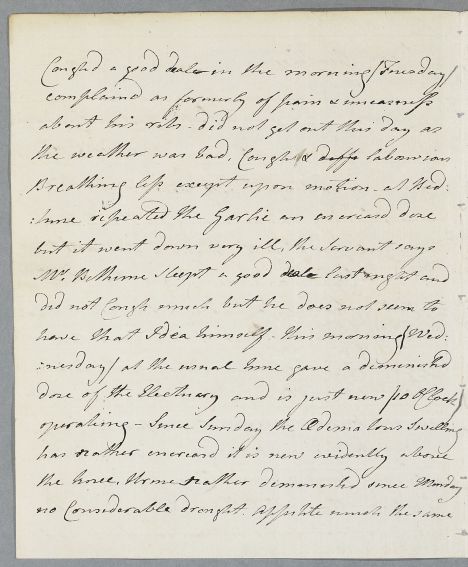 Coughd a good deale in the morning (Tuesday)
complaind as formerly of pain & uneasiness
about his ribs - did not get out this day as
the weather was bad, Cough & diffs laborious
Breathing less except upon motion - at Bed:
:time repeated the Garlic an encreasd dose
but it went down very ill, the Servant says
Mr. Bethune Sleept a good deale last night and
did not Cough much but he does not seem to
have that Idea himself - this morning (Wed:
:nesday) at the usual time gave a diminishd
dose of the Electuary and is just now (10 OClock)
operating - Since Sunday the Œdematous Swelling
has rather encreasd it is now evidently above
the knee, Urine rather deminishd since Monday
no Considerable drought. Appetite much the same